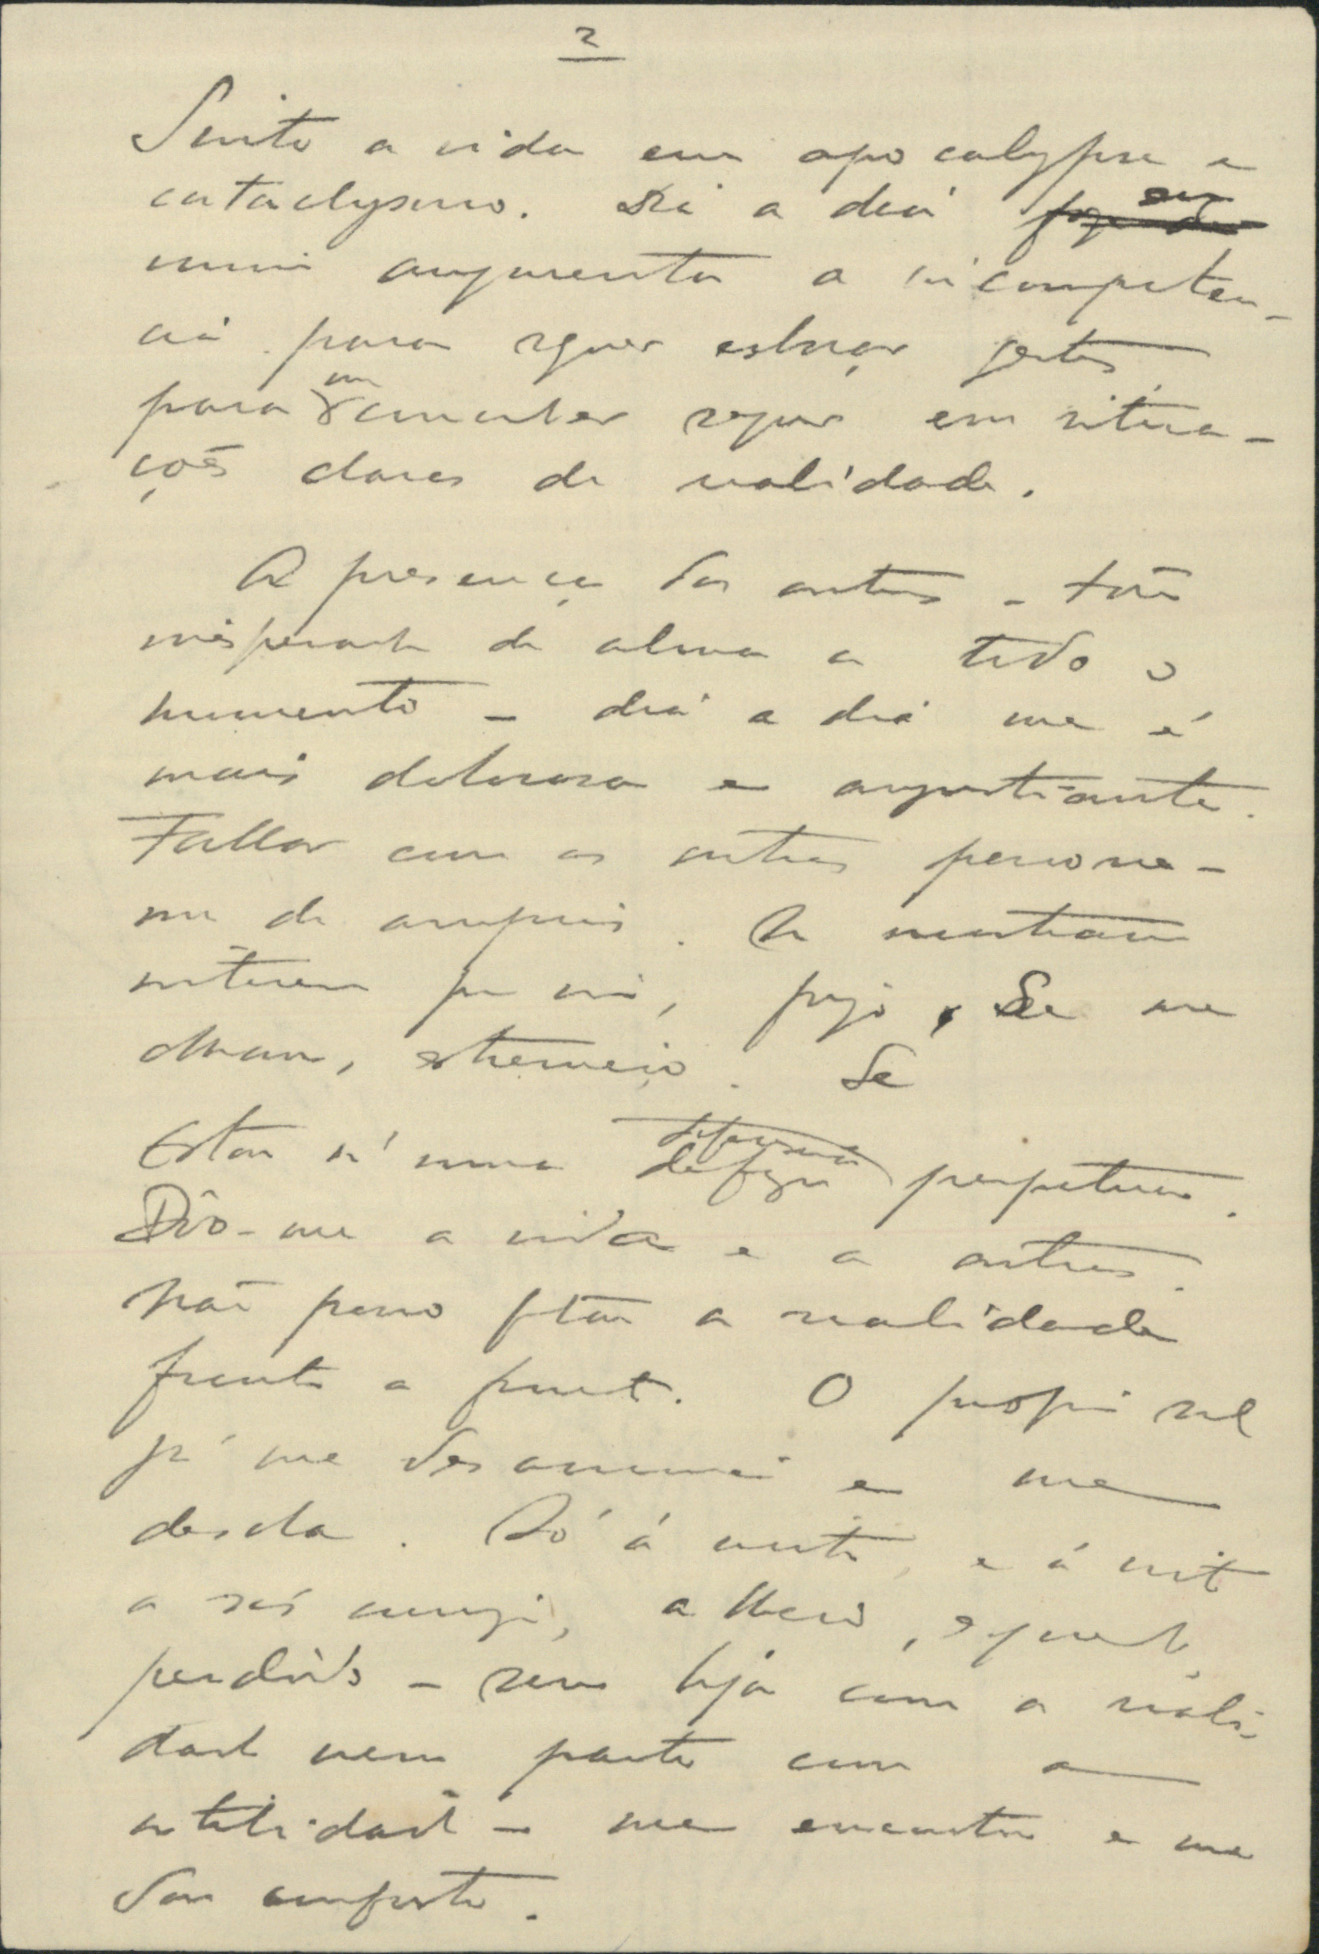 2
Sinto a vida em apocalypse e
cataclysmo. Dia a dia em
mim augmenta a incompeten-
cia para sequer esboçar gestos,
para me conceber sequer em situa-
ções claras de realidade.
A presença dos outros – tão
inesperada de alma a todo o
momento – dia a dia me é
mais dolorosa e angustiante.
Fallar com os outros percorre-
me de arrepios. Se mostram
interesse por mim, fujo. Se me
olham, estremeço. Se
Estou n'uma defensiva perpetua.
Dóo-me a vida e a outros.
Não posso fitar a realidade
frente a frente. O proprio sol
já me desanima e me
desola. Só á noite, e á noite
a sós commigo, alheio, esquecido,
perdido – sem liga com a reali-
dade nem parte com a
utilidade – me encontro e me
dou conforto.